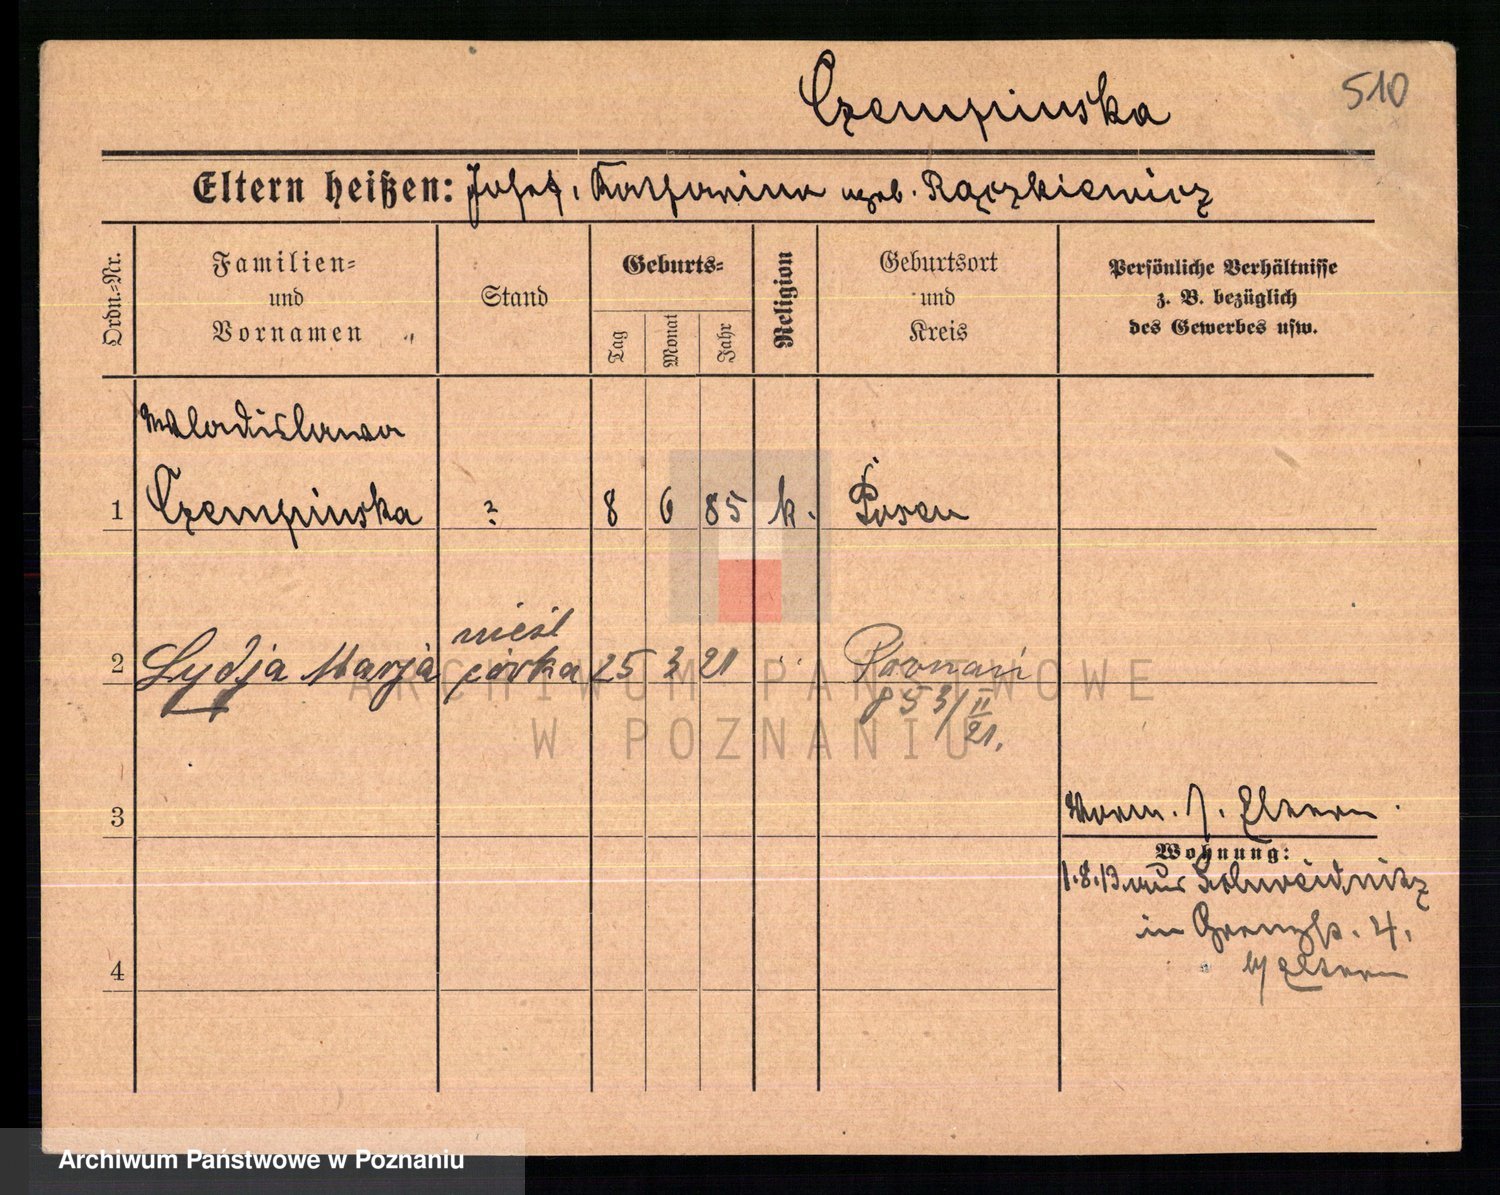 Czempinska
510
Eltern heißen: Josef, Katharina geb. Rączkiewicz
Ordn.-Nr.
Familien-
und
Vornamen
Stand
Geburts-
Tag
Monat
Jahr
Religion
Geburtsort
und
Kreis
Persönliche Verhältnisse
z. B. bezüglich
des Gewerbes usw.
Wladislawa
1 Czempinska ? 8 6 85 k. Posen
nieśl
2 Lydja Marja córka 25 3 21 Poznań
853/II
21.
3
Vorm. s. Eltern
Wohnung:
1.8.13 aus Schweidnitz
in 4.
b/ Eltern
4
ARCHIWUM PAŃSTWOWE
W POZNANIU
Archiwum Państwowe w Poznaniu